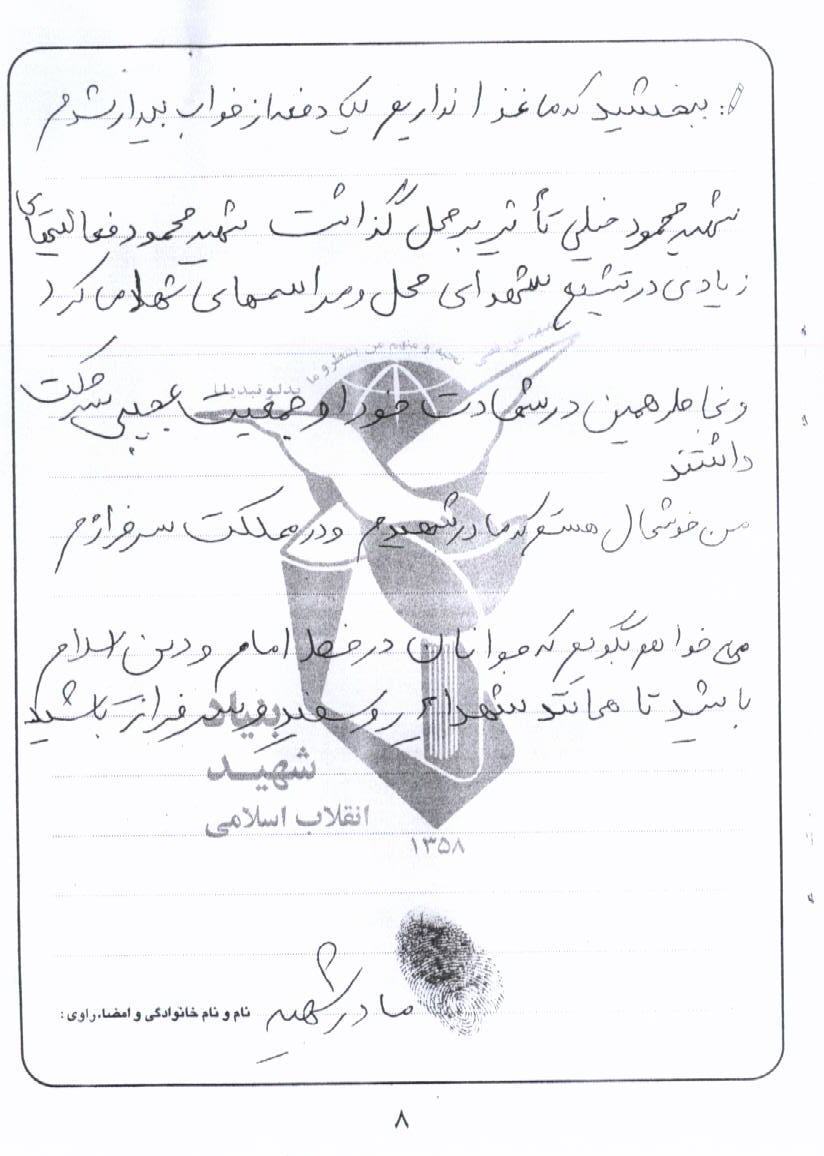 : ببخشید که ما غذا نداریم یک دفعه از خواب بیدار شدم
شهید محمود خیلی تأثیر بر محل گذاشت شهید محمود فعالیتهای
زیادی در تشیع شهدای محل و مراسمهای شهدا می کرد
بدلو تبدیلا
و بخاطر همین در شهادت خود او جمعیت عجیبی شرکت
داشتند
من خوشحال هستم که مادر شهیدم و در مملکت سرفرازم
می خواهم بگویم که جوانان در خط امام و دین اسلام
باشید تا همانند شهدا روسفید و سرفراز باشید
بنیاد
شهید
انقلاب اسلامی
۱۳۵۸
مادر شهید
نام و نام خانوادگی و امضاء راوی :
۸